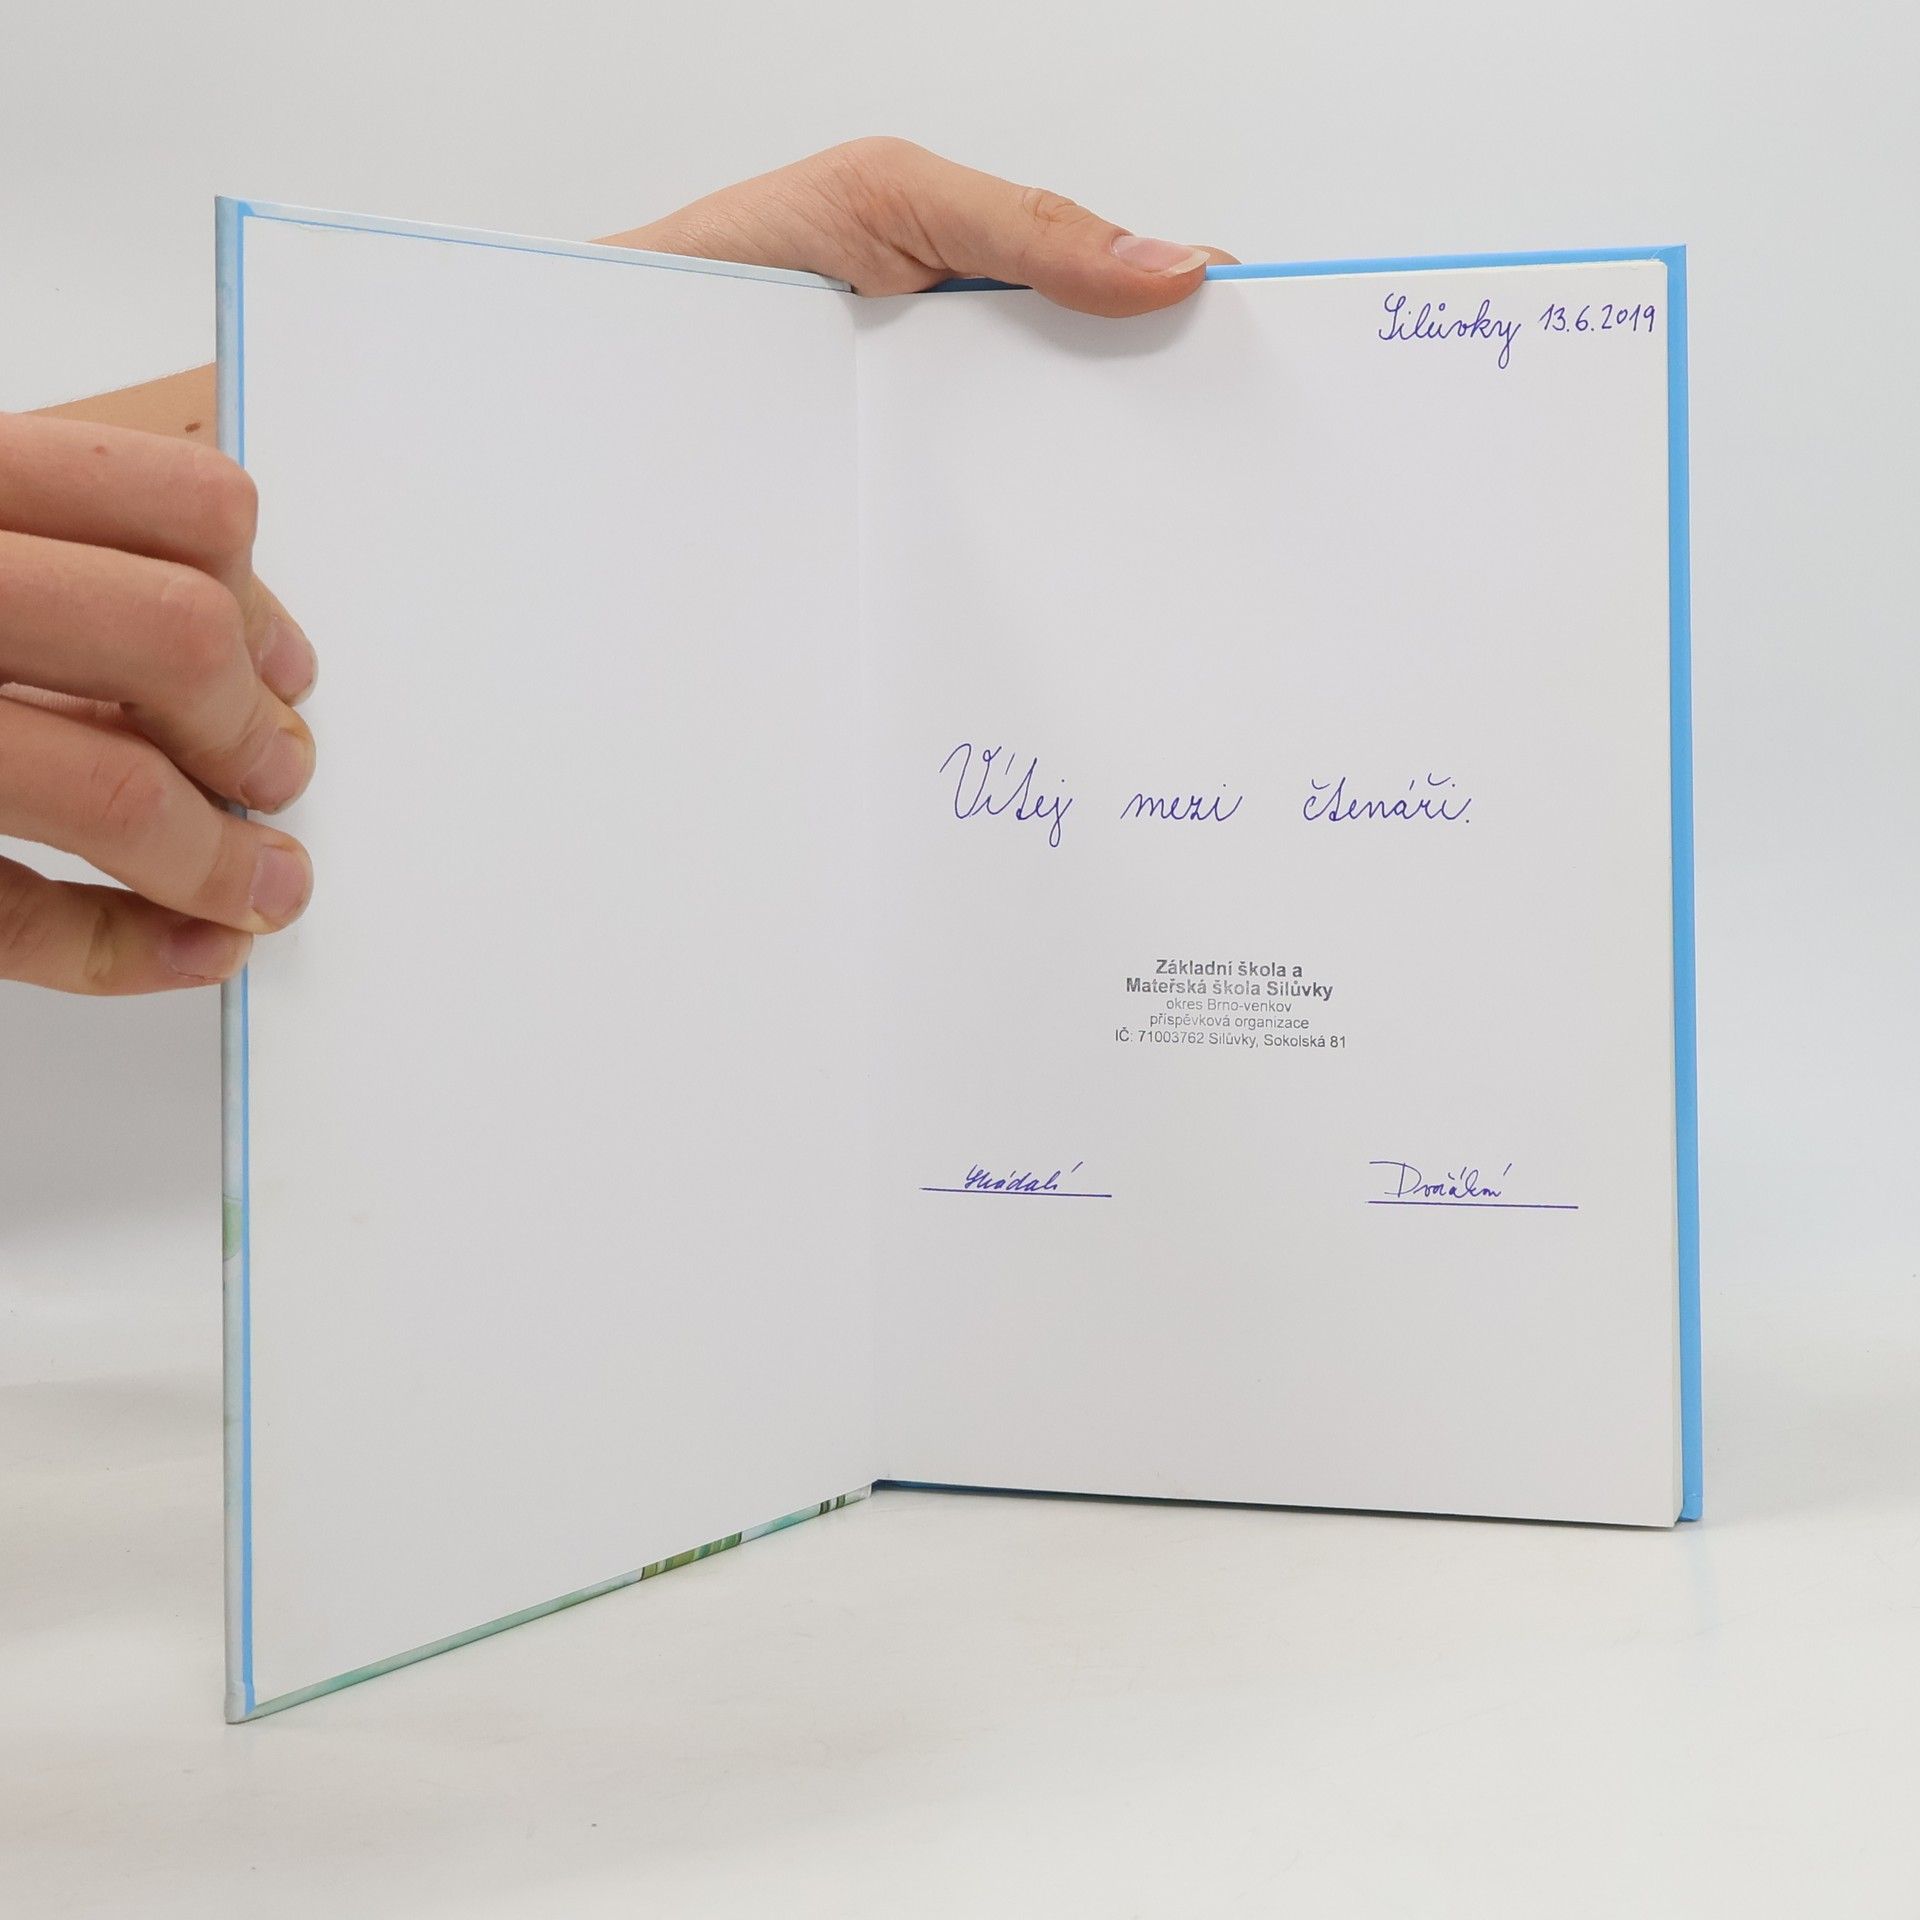 Silůvky 13.6.2019
Vítej mezi čtenáři.
Základní škola a
Mateřská škola Silůvky
okres Brno-venkov
příspěvková organizace
IČ: 71003762 Silůvky, Sokolská 81
Dvořáková